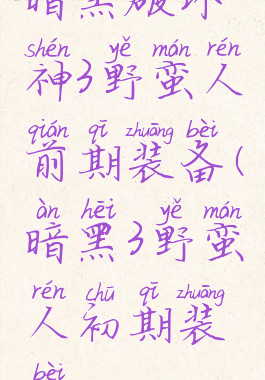 暗黑破坏
shén yě mán rén
神3野蛮人
qián qī zhuāng bèi
前期装备(
àn hēi yě mán
暗黑3野蛮
rén chū qī zhuāng
人初期装
bèi